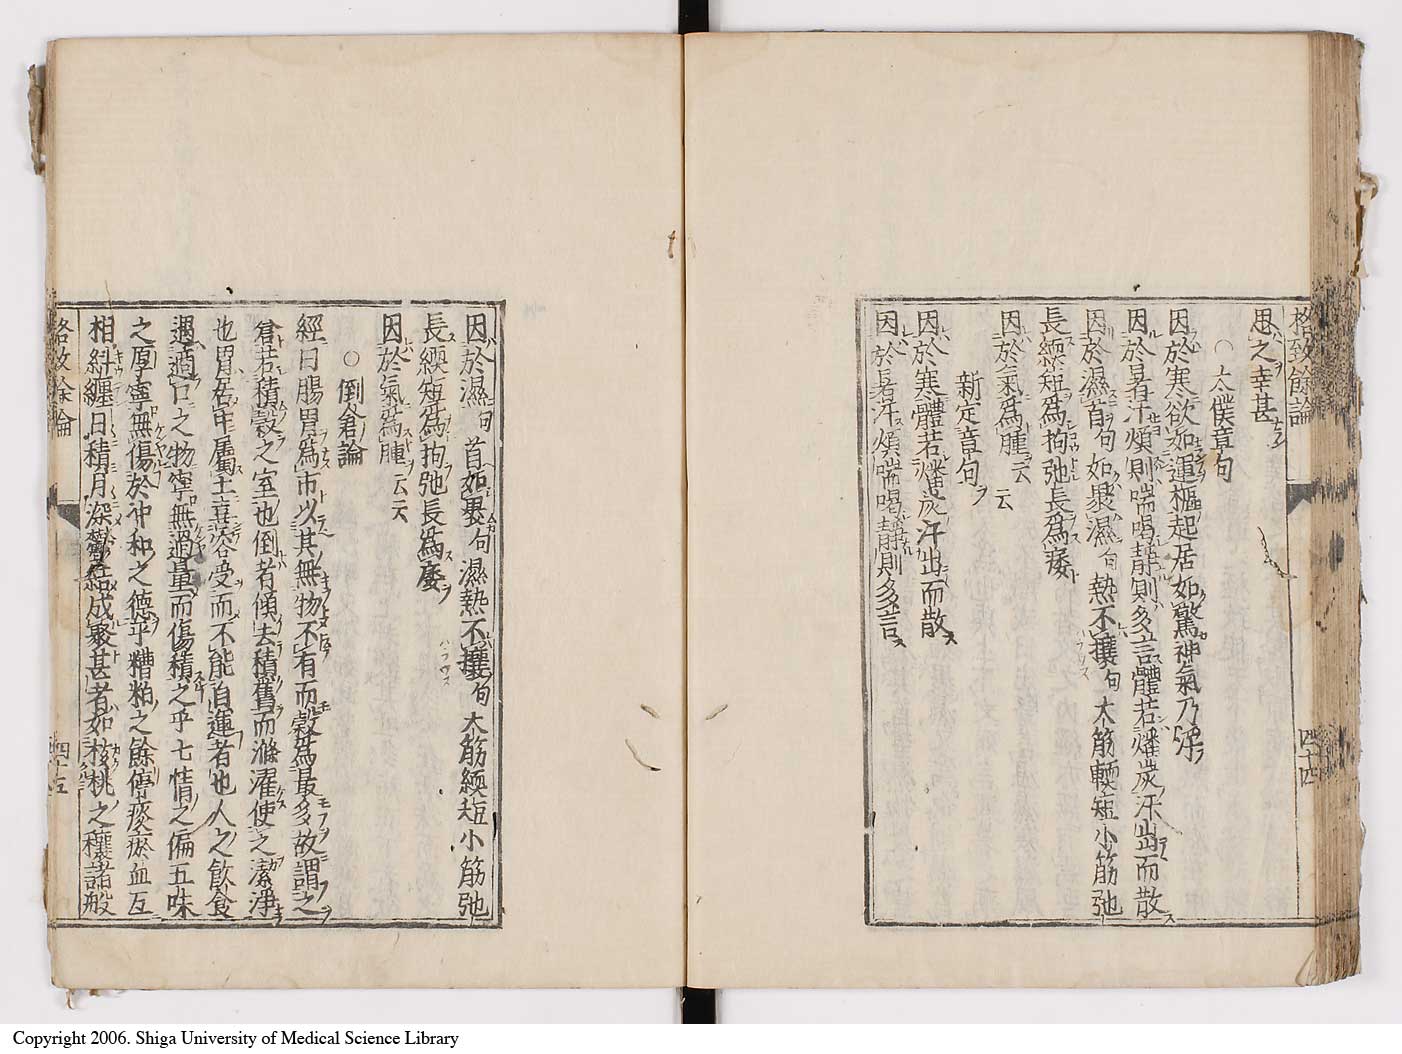 格致餘論
四十四
思之幸甚
○太僕章句
因於寒欲如運樞起居如驚神氣乃浮
因於暑汗煩則喘喝靜則多言體若燔炭汗出而散
因於濕首句如裹濕句熱不攘句大筋輭短小筋弛
長緛短為拘弛長為痿
因於氣為腫云云
新定章句
因於寒體若燔炭汗出而散
因於暑汗煩喘喝靜則多言
因於濕句首如裹句濕熱不攘句大筋緛短小筋弛
長緛短為拘弛長為痿
因於氣為腫云云
○倒倉論
經曰腸胃為市以其無物不有而穀為最多故謂之
倉若積穀之室也倒者傾去積舊而滌濯使之潔淨
也胃居中屬土喜容受而不能自運者也人之飲食
遇適口之物寧無過量而傷積之乎七情之偏五味
之厚寧無傷於冲和之德乎糟粕之餘停痰瘀血互
相糾纏日積月深鬱結成聚甚者如核桃之穰諸般
格致餘論
四十五
Copyright 2006. Shiga University of Medical Science Library